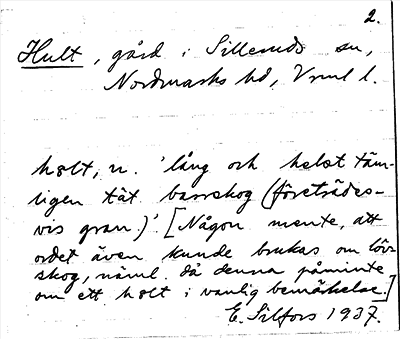 2.
Hult, gård i Silleruds sn,
Nordmarks hd, Vrml l.
hɷlt, n. 'lång och helst täm-
ligen tät barrskog (företrädes-
vis gran)'. [Någon mente, att
ordet även kunde brukas om löv-
skog, näml. då denna påminte
om ett hɷlt i vanlig bemärkelse.]
E. Silfors 1937.